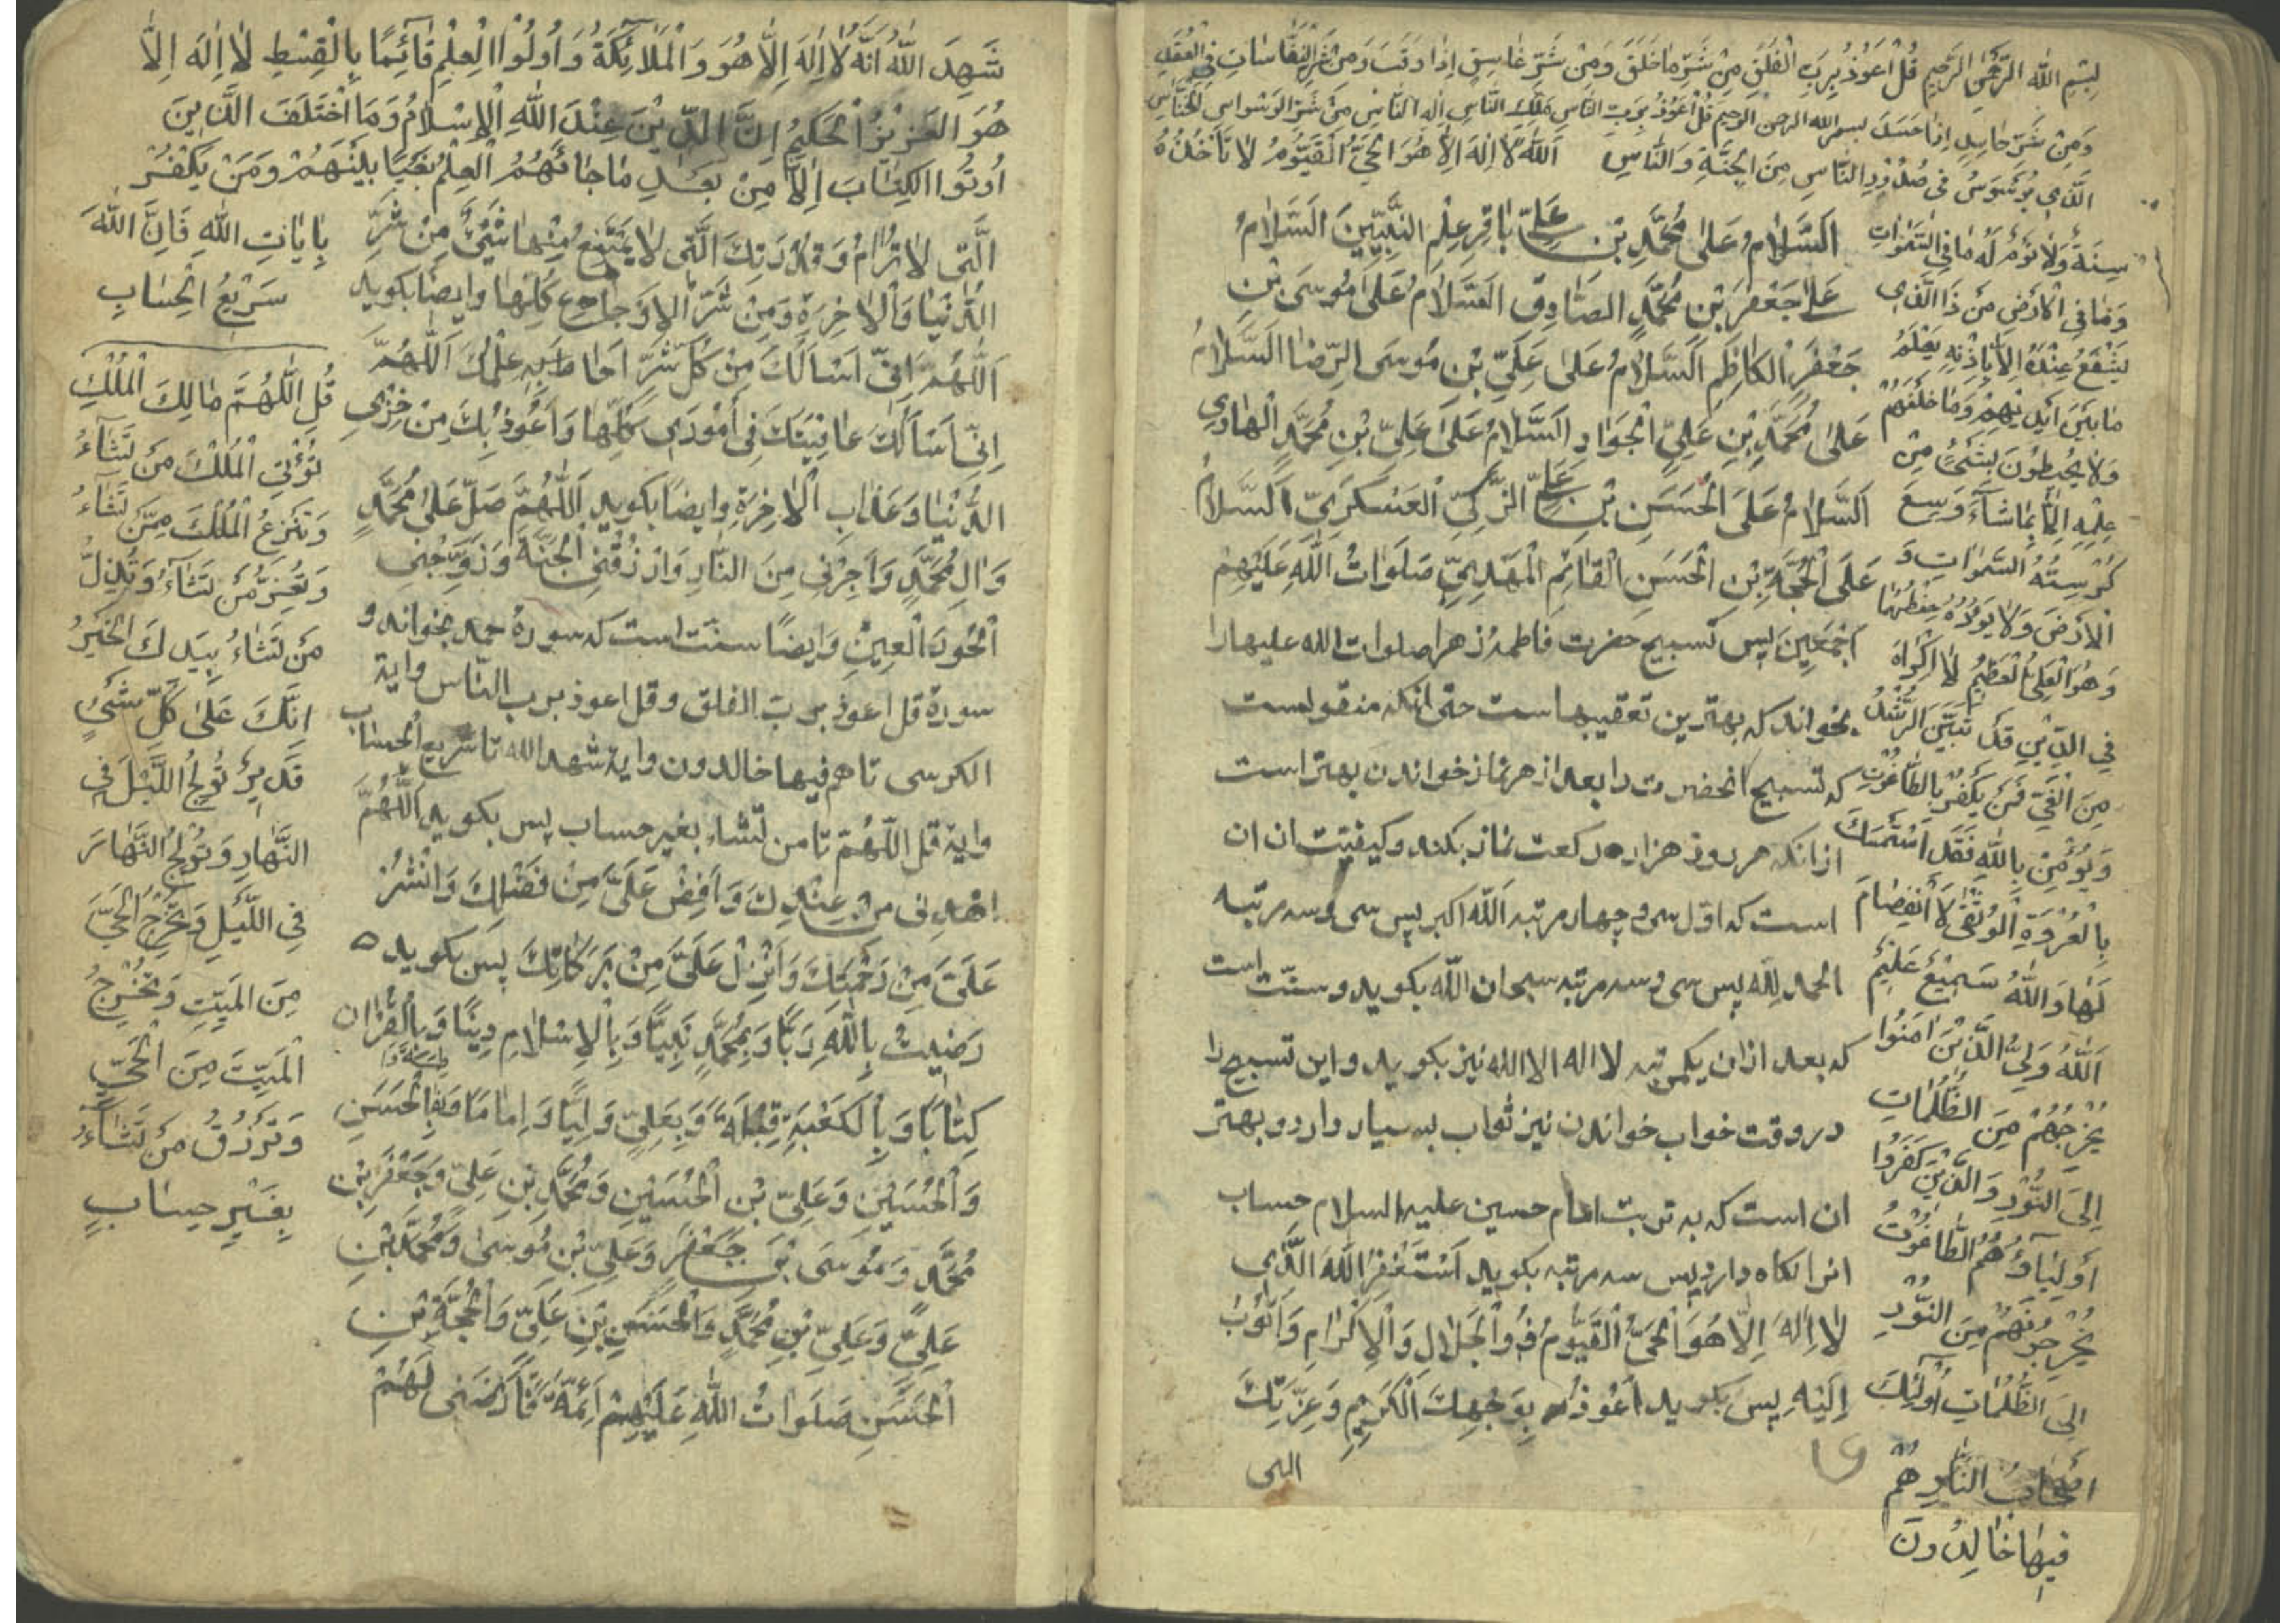 بِسْمِ اللّٰهِ الرَّحْمٰنِ الرَّحِيمِ قُلْ اَعُوْذُ بِرَبِّ الْفَلَقِ مِنْ شَرِّ مَا خَلَقَ وَمِنْ شَرِّ غَاسِقٍ اِذَا وَقَبَ وَمِنْ شَرِّ النَّفَّاثَاتِ فِي الْعُقَدِ
وَمِنْ شَرِّ حَاسِدٍ اِذَا حَسَدَ بسم الله الرحمن الرحيم قُلْ اَعُوْذُ بِرَبِّ النَّاسِ مَلِكِ النَّاسِ اِلٰهِ النَّاسِ مِنْ شَرِّ الوَسْوَاسِ الْخَنَّاسِ
الَّذِي يُوَسْوِسُ فِي صُدُوْرِ النَّاسِ مِنَ الْجِنَّةِ وَالنَّاسِ اَللّٰهُ لَا اِلٰهَ اِلَّا هُوَ الْحَيُّ الْقَيُّوْمُ لَا تَأْخُذُهُ
سِنَةٌ وَلَا نَوْمٌ لَهُ مَا فِي السَّمٰوَاتِ
وَمَا فِي الْاَرْضِ مَنْ ذَا الَّذِي
يَشْفَعُ عِنْدَهُ اِلَّا بِاِذْنِهِ يَعْلَمُ
مَا بَيْنَ اَيْدِيْهِمْ وَمَا خَلْفَهُمْ
وَلَا يُحِيطُوْنَ بِشَيْءٍ مِنْ
عِلْمِهِ اِلَّا بِمَا شَآءَ وَسِعَ
كُرْسِيُّهُ السَّمٰوَاتِ وَ
الْاَرْضَ وَلَا يَؤُدُهُ حِفْظُهُمَا
وَهُوَ الْعَلِيُّ الْعَظِيْمُ لَا اِكْرَاهَ
فِي الدِّيْنِ قَدْ تَبَيَّنَ الرُّشْدُ
مِنَ الْغَيِّ فَمَنْ يَكْفُرْ بِالطَّاغُوْتِ
وَيُؤْمِنْ بِاللّٰهِ فَقَدِ اسْتَمْسَكَ
بِالْعُرْوَةِ الْوُثْقٰى لَا انْفِصَامَ
لَهَا وَاللّٰهُ سَمِيْعٌ عَلِيْمٌ
اَللّٰهُ وَلِيُّ الَّذِيْنَ اٰمَنُوا
يُخْرِجُهُمْ مِنَ الظُّلُمَاتِ
اِلَى النُّوْرِ وَالَّذِيْنَ كَفَرُوا
اَوْلِيَآؤُهُمُ الطَّاغُوْتُ
يُخْرِجُوْنَهُمْ مِنَ النُّوْرِ
اِلَى الظُّلُمَاتِ اُولٰئِكَ
اَصْحَابُ النَّارِ هُمْ
فِيْهَا خَالِدُوْنَ
اَلسَّلَامُ عَلٰى مُحَمَّدِ بْنِ عَلِيٍّ بَاقِرِ عِلْمِ النَّبِيِّيْنَ اَلسَّلَامُ
عَلٰى جَعْفَرِ بْنِ مُحَمَّدٍ الصَّادِقِ اَلسَّلَامُ عَلٰى مُوْسَى بْنِ
جَعْفَرٍ الْكَاظِمِ اَلسَّلَامُ عَلٰى عَلِيِّ بْنِ مُوْسَى الرِّضَا اَلسَّلَامُ
عَلٰى مُحَمَّدِ بْنِ عَلِيٍّ الْجَوَادِ اَلسَّلَامُ عَلٰى عَلِيِّ بْنِ مُحَمَّدٍ الْهَادِي
اَلسَّلَامُ عَلَى الْحَسَنِ بْنِ عَلِيٍّ الزَّكِيِّ الْعَسْكَرِيِّ اَلسَّلَامُ
عَلَى الْحُجَّةِ بْنِ الْحَسَنِ الْقَائِمِ الْمَهْدِيِّ صَلَوَاتُ اللّٰهِ عَلَيْهِمْ
اَجْمَعِيْنَ پس تسبيح حضرت فاطمه زهرا صلوات الله عليها را
بخواند كه بهترين تعقيبهاست حتى انكه منقولست
كه تسبيح انحضرت را بعد از هر نماز خواندن بهتر است
از انكه هر روز هزار ركعت نماز بكند و كيفيت ان ان
است كه اول سى و چهار مرتبه الله اكبر پس سى و سه مرتبه
الحمد لله پس سى و سه مرتبه سبحان الله بكويد و سنت است
كه بعد ازان يكمرتبه لا اله الا الله نيز بكويد و اين تسبيح را
در وقت خواب خواندن نيز ثواب بسيار دارد و بهتر
ان است كه به تربت امام حسين عليه السلام حساب
انرا نكاه دارد پس سه مرتبه بكويد اَسْتَغْفِرُ اللّٰهَ الَّذِي
لَا اِلٰهَ اِلَّا هُوَ الْحَيُّ الْقَيُّوْمُ ذُو الْجَلَالِ وَالْاِكْرَامِ وَاَتُوْبُ
اِلَيْهِ پس بكويد اَعُوْذُ بِوَجْهِكَ الْكَرِيْمِ وَعِزَّتِكَ
التى
شَهِدَ اللّٰهُ اَنَّهُ لَا اِلٰهَ اِلَّا هُوَ وَالْمَلَائِكَةُ وَاُولُوا الْعِلْمِ قَائِمًا بِالْقِسْطِ لَا اِلٰهَ اِلَّا
هُوَ الْعَزِيْزُ الْحَكِيْمُ اِنَّ الدِّيْنَ عِنْدَ اللّٰهِ الْاِسْلَامُ وَمَا اخْتَلَفَ الَّذِيْنَ
اُوْتُوا الْكِتَابَ اِلَّا مِنْ بَعْدِ مَا جَائَهُمُ الْعِلْمُ بَغْيًا بَيْنَهُمْ وَمَنْ يَكْفُرْ
بِاٰيَاتِ اللّٰهِ فَاِنَّ اللّٰهَ
سَرِيْعُ الْحِسَابِ
الَّتِي لَا تُرَامُ وَقُدْرَتِكَ الَّتِي لَا يَمْتَنِعُ مِنْهَا شَيْءٌ مِنْ شَرِّ
الدُّنْيَا وَالْاٰخِرَةِ وَمِنْ شَرِّ الْاَوْجَاعِ كُلِّهَا وايضا بكويد
اَللّٰهُمَّ اِنِّي اَسْاَلُكَ مِنْ كُلِّ شَرٍّ اَحَاطَ بِهِ عِلْمُكَ اَللّٰهُمَّ
اِنِّي اَسْاَلُكَ عَافِيَتَكَ فِي اُمُوْرِي كُلِّهَا وَاَعُوْذُ بِكَ مِنْ خِزْيِ
الدُّنْيَا وَعَذَابِ الْاٰخِرَةِ وايضا بكويد اَللّٰهُمَّ صَلِّ عَلٰى مُحَمَّدٍ
وَاٰلِ مُحَمَّدٍ وَاَجِرْنِي مِنَ النَّارِ وَارْزُقْنِي الْجَنَّةَ وَزَوِّجْنِي
الْحُوْرَ الْعِيْنَ وَايضًا سنت است كه سوره حمد بخواند و
سورة قل اعوذ برب الفلق و قل اعوذ برب الناس و اية
الكرسى تا هم فيها خالدون و اية شهد الله تا سريع الحساب
و اية قل اللهم تا من تشاء بغير حساب پس بكويد اَللّٰهُمَّ
اِهْدِنِي مِنْ عِنْدِكَ وَاَفِضْ عَلَيَّ مِنْ فَضْلِكَ وَانْشُرْ
عَلَيَّ مِنْ رَحْمَتِكَ وَاَنْزِلْ عَلَيَّ مِنْ بَرَكَاتِكَ پس بكويد
رَضِيْتُ بِاللّٰهِ رَبًّا وَبِمُحَمَّدٍ نَبِيًّا وَبِالْاِسْلَامِ دِيْنًا وَبِالْقُرْاٰنِ
كِتَابًا وَبِالْكَعْبَةِ قِبْلَةً وَبِعَلِيٍّ وَلِيًّا وَاِمَامًا وَبِالْحَسَنِ
وَالْحُسَيْنِ وَعَلِيِّ بْنِ الْحُسَيْنِ وَمُحَمَّدِ بْنِ عَلِيٍّ وَجَعْفَرِ بْنِ
مُحَمَّدٍ وَمُوْسَى بْنِ جَعْفَرٍ وَعَلِيِّ بْنِ مُوْسَى وَمُحَمَّدِ بْنِ
عَلِيٍّ وَعَلِيِّ بْنِ مُحَمَّدٍ وَالْحَسَنِ بْنِ عَلِيٍّ وَالْحُجَّةِ بْنِ
الْحَسَنِ صَلَوَاتُ اللّٰهِ عَلَيْهِمْ اَئِمَّةً لَهُمْ
قُلِ اللّٰهُمَّ مَالِكَ الْمُلْكِ
تُؤْتِي الْمُلْكَ مَنْ تَشَآءُ
وَتَنْزِعُ الْمُلْكَ مِمَّنْ تَشَآءُ
وَتُعِزُّ مَنْ تَشَآءُ وَتُذِلُّ
مَنْ تَشَاءُ بِيَدِكَ الْخَيْرُ
اِنَّكَ عَلٰى كُلِّ شَيْءٍ
قَدِيْرٌ تُوْلِجُ اللَّيْلَ فِي
النَّهَارِ وَتُوْلِجُ النَّهَارَ
فِي اللَّيْلِ وَتُخْرِجُ الْحَيَّ
مِنَ الْمَيِّتِ وَتُخْرِجُ
الْمَيِّتَ مِنَ الْحَيِّ
وَتَرْزُقُ مَنْ تَشَآءُ
بِغَيْرِ حِسَابٍ